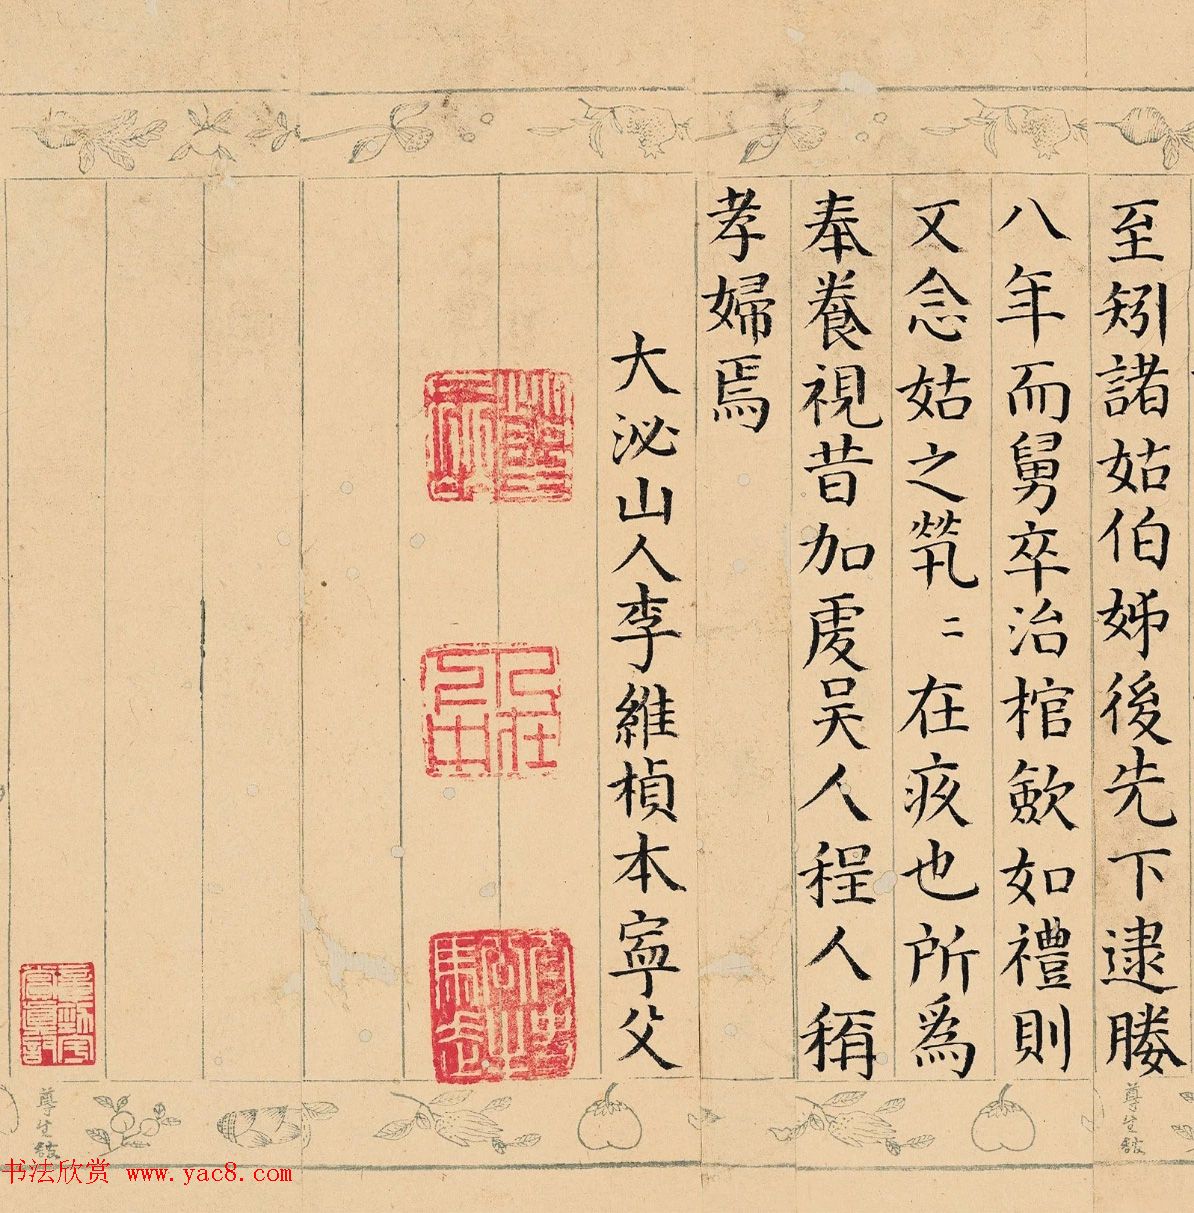 至矧諸姑伯姊後先下逮媵
八年而舅卒治棺歛如禮則
又念姑之煢二在疚也所爲
奉養視昔加虔吳人程人稱
孝婦焉
大泌山人李維楨本寧父
尊生館
尊生館
书法欣赏 www.yac8.com